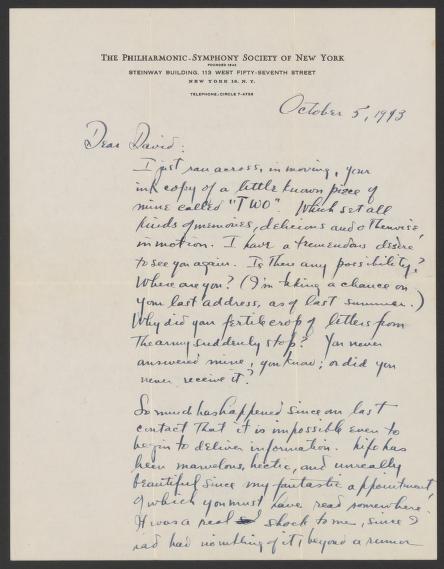 THE PHILHARMONIC-SYMPHONY SOCIETY OF NEW YORK
FOUNDED 1842
STEINWAY BUILDING, 113 WEST FIFTY-SEVENTH STREET
NEW YORK 19, N.Y.
TELEPHONE: CIRCLE 7-4798
October 5, 1943
Dear David:
I just ran across, in moving, your
ink copy of a little known piece of
mine called "TWO". Which set all
kinds of memories, delicious and otherwise,
in motion. I have a tremendous desire
to see you again. Is there any possibility?
Where are you? (I'm taking a chance on
your last address, as of last summer.)
Why did your fertile crop of letters from
the army suddenly stop? You never
answered mine, you know; or did you
never receive it?
So much has happened since our last
contact that it is impossible even to
begin to deliver information. Life has
been marvelous, hectic, and unreally
beautiful since my fantastic appointment,
of which you must have read somewhere.
It was a real shock to me, since I
had had no inkling of it, beyond a rumor